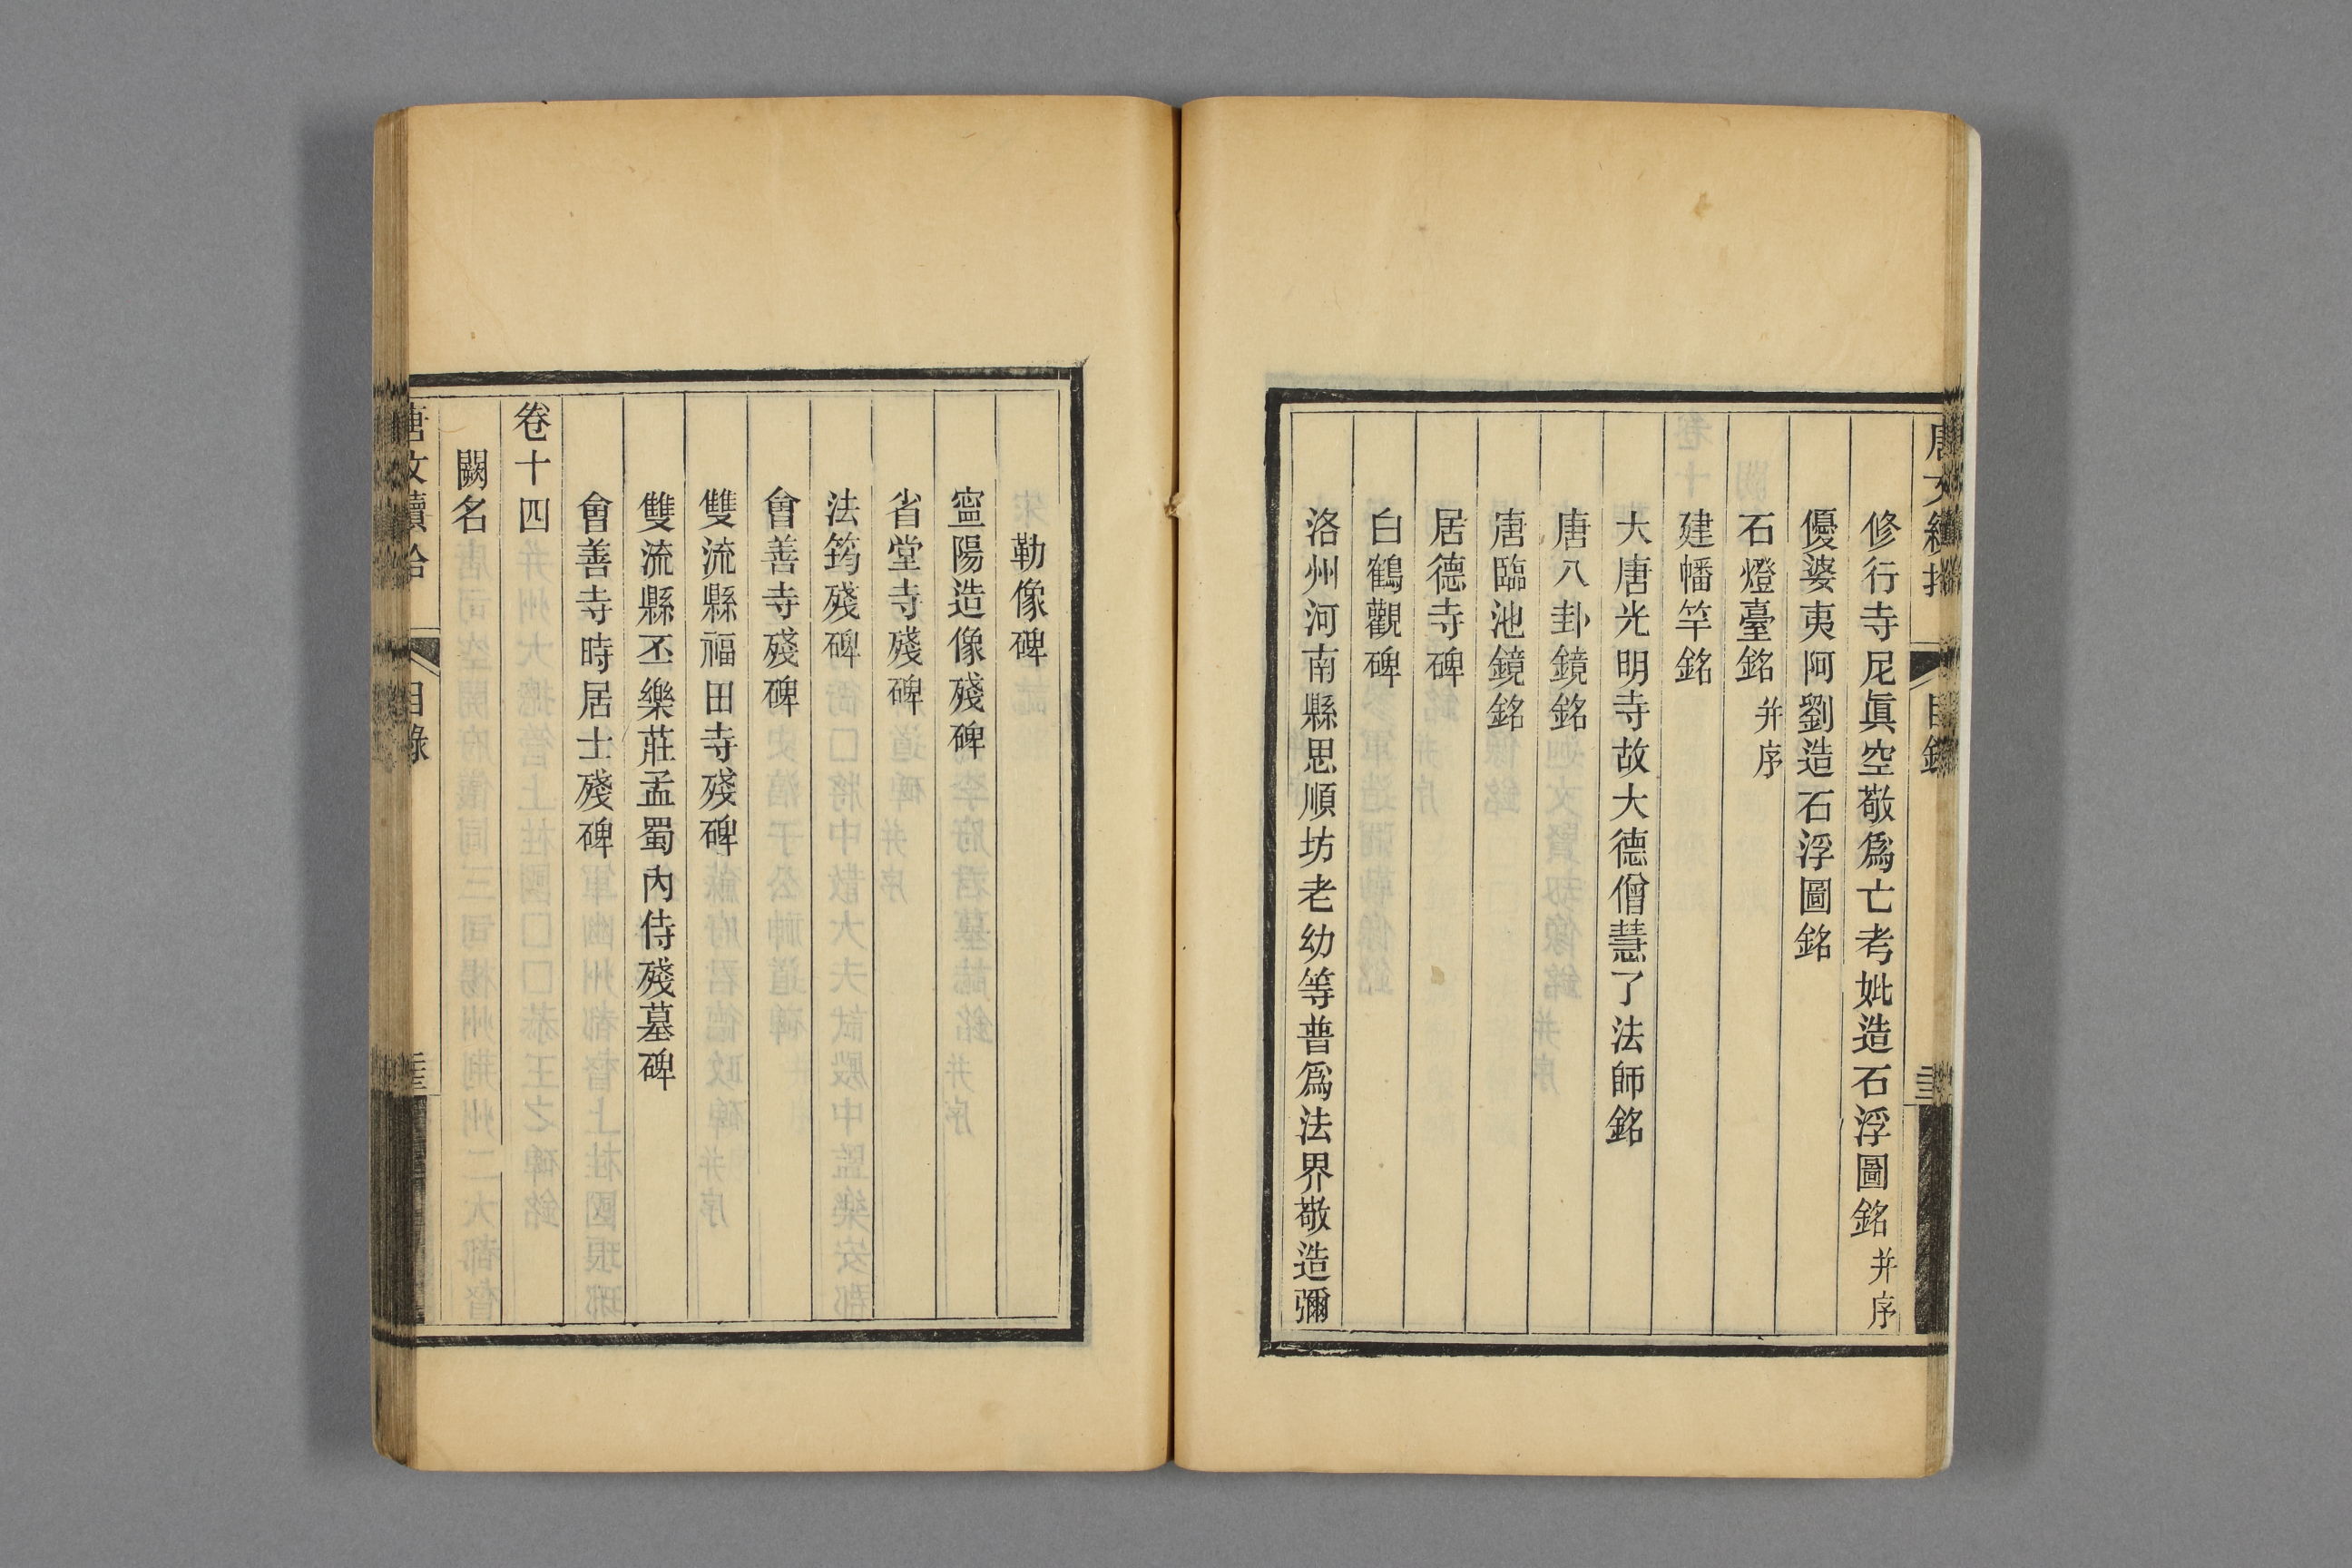 修行寺尼眞空敬爲亡考妣造石浮圖銘并序
優婆夷阿劉造石浮圖銘
石燈臺銘并序
建幡竿銘
大唐光明寺故大德僧慧了法師銘
唐八卦鏡銘
唐臨池鏡銘
居德寺碑
白鶴觀碑
洛州河南縣思順坊老幼等普爲法界敬造彌
勒像碑
寍陽造像殘碑
省堂寺殘碑
法筠殘碑
會善寺殘碑
雙流縣福田寺殘碑
雙流縣丞樂莊孟蜀內侍殘墓碑
會善寺時居士殘碑
卷十四
闕名
唐文續拾
目錄